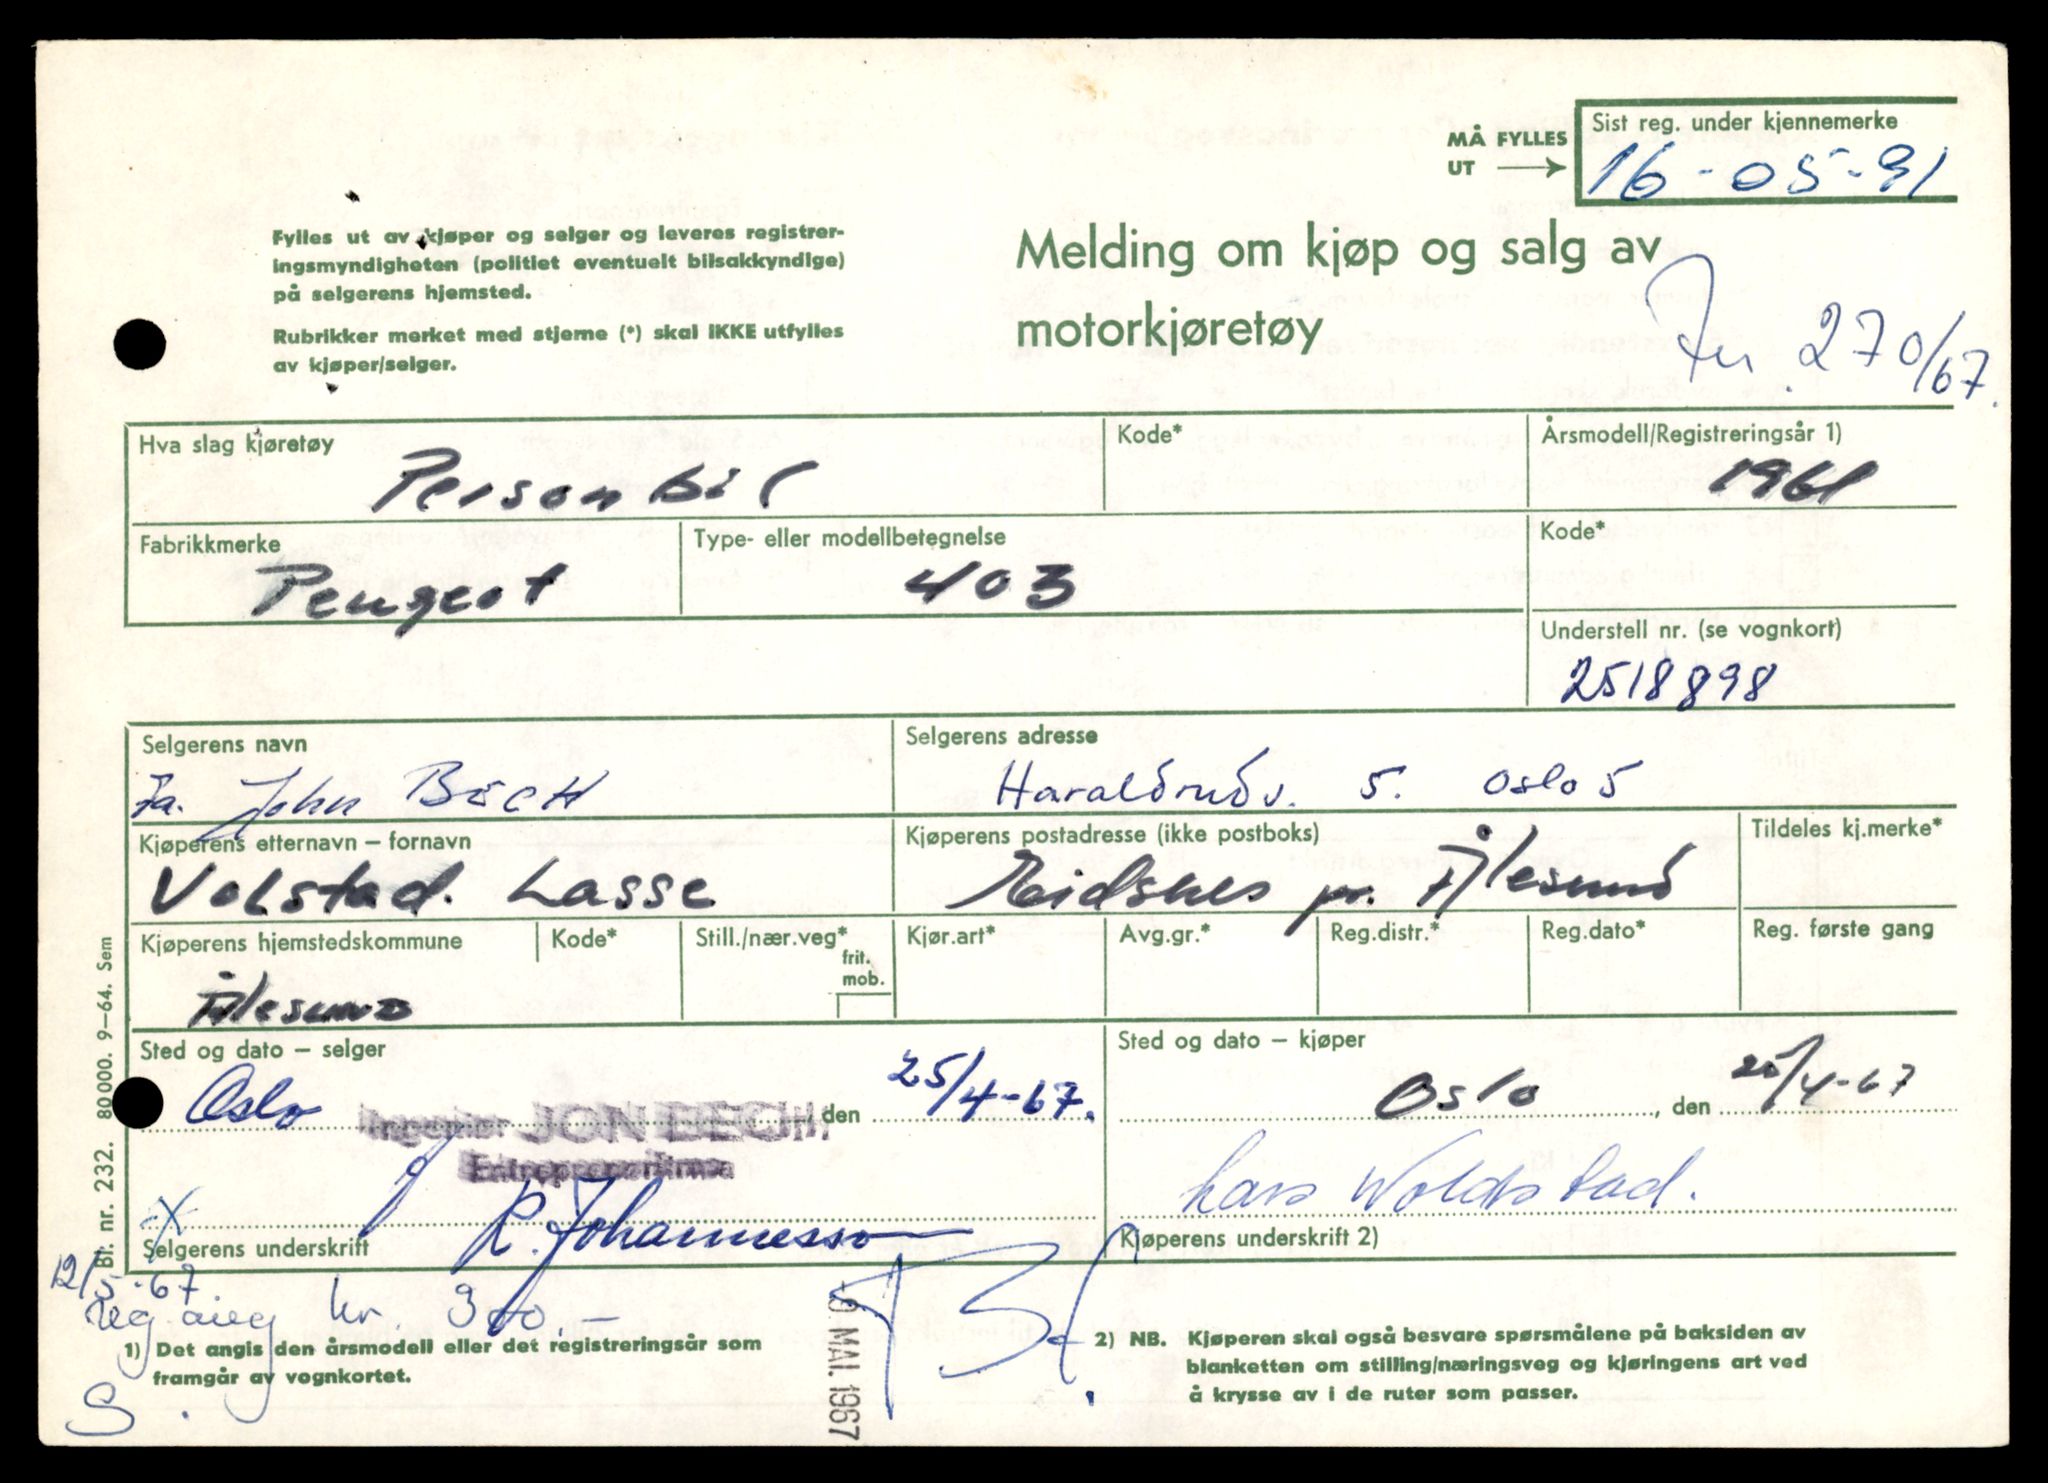 MÅ FYLLES UT
Sist reg. under kjennemerke
16-05-91
Fylles ut av kjøper og selger og leveres registrer-
ingsmyndigheten (politiet eventuelt bilsakkyndige)
på selgerens hjemsted.
Rubrikker merket med stjerne (*) skal IKKE utfylles
av kjøper/selger.
Melding om kjøp og salg av
motorkjøretøy
270/67.
Hva slag kjøretøy
Personbil
Kode*
Årsmodell/Registreringsår 1)
1961
Fabrikkmerke
Peugeot
Type- eller modellbetegnelse
403
Kode*
Understell nr. (se vognkort)
2518898
Selgerens navn
Fa. John Bech
Selgerens adresse
Haraldrudv. 5. Oslo 5
Kjøperens etternavn – fornavn
Volstad. Lasse
Kjøperens postadresse (ikke postboks)
Eidsnes pr. Ålesund
Tildeles kj.merke*
Kjøperens hjemstedskommune
Ålesund
Kode*
Still./nær.veg*
frit.
mob.
Kjør.art*
Avg.gr.*
Reg.distr.*
Reg.dato*
Reg. første gang
Sted og dato – selger
Oslo, den 25/4-67.
Ingeniør JON BECH
Entreprenørfirma
R. Johannesson
Selgerens underskrift
Sted og dato – kjøper
Oslo, den 25/4-67
Lars Woldstad.
Kjøperens underskrift 2)
Bl. nr. 232. 80 000. 9–64. Sem
12/5-67
reg avg kr. 300.–
S.
1) Det angis den årsmodell eller det registreringsår som
framgår av vognkortet.
MAI. 1967
2) NB. Kjøperen skal også besvare spørsmålene på baksiden av
blanketten om stilling/næringsveg og kjøringens art ved
å krysse av i de ruter som passer.